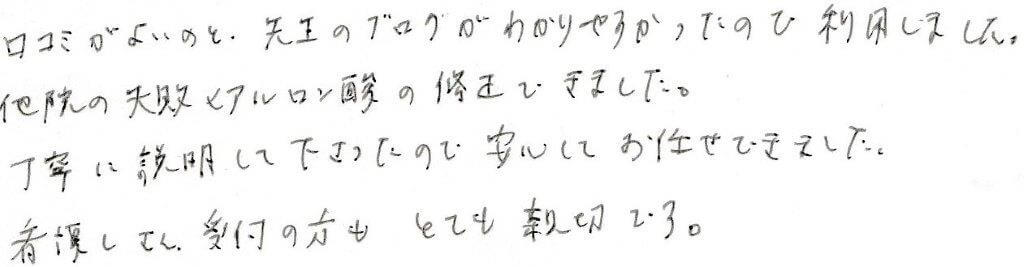 口コミがよいのと、先生のブログがわかりやすかったので利用しました。
他院の失敗ヒアルロン酸の修正できました。
丁寧に説明して下さったので安心してお任せできました。
看護しさん、受付の方もとても親切です。